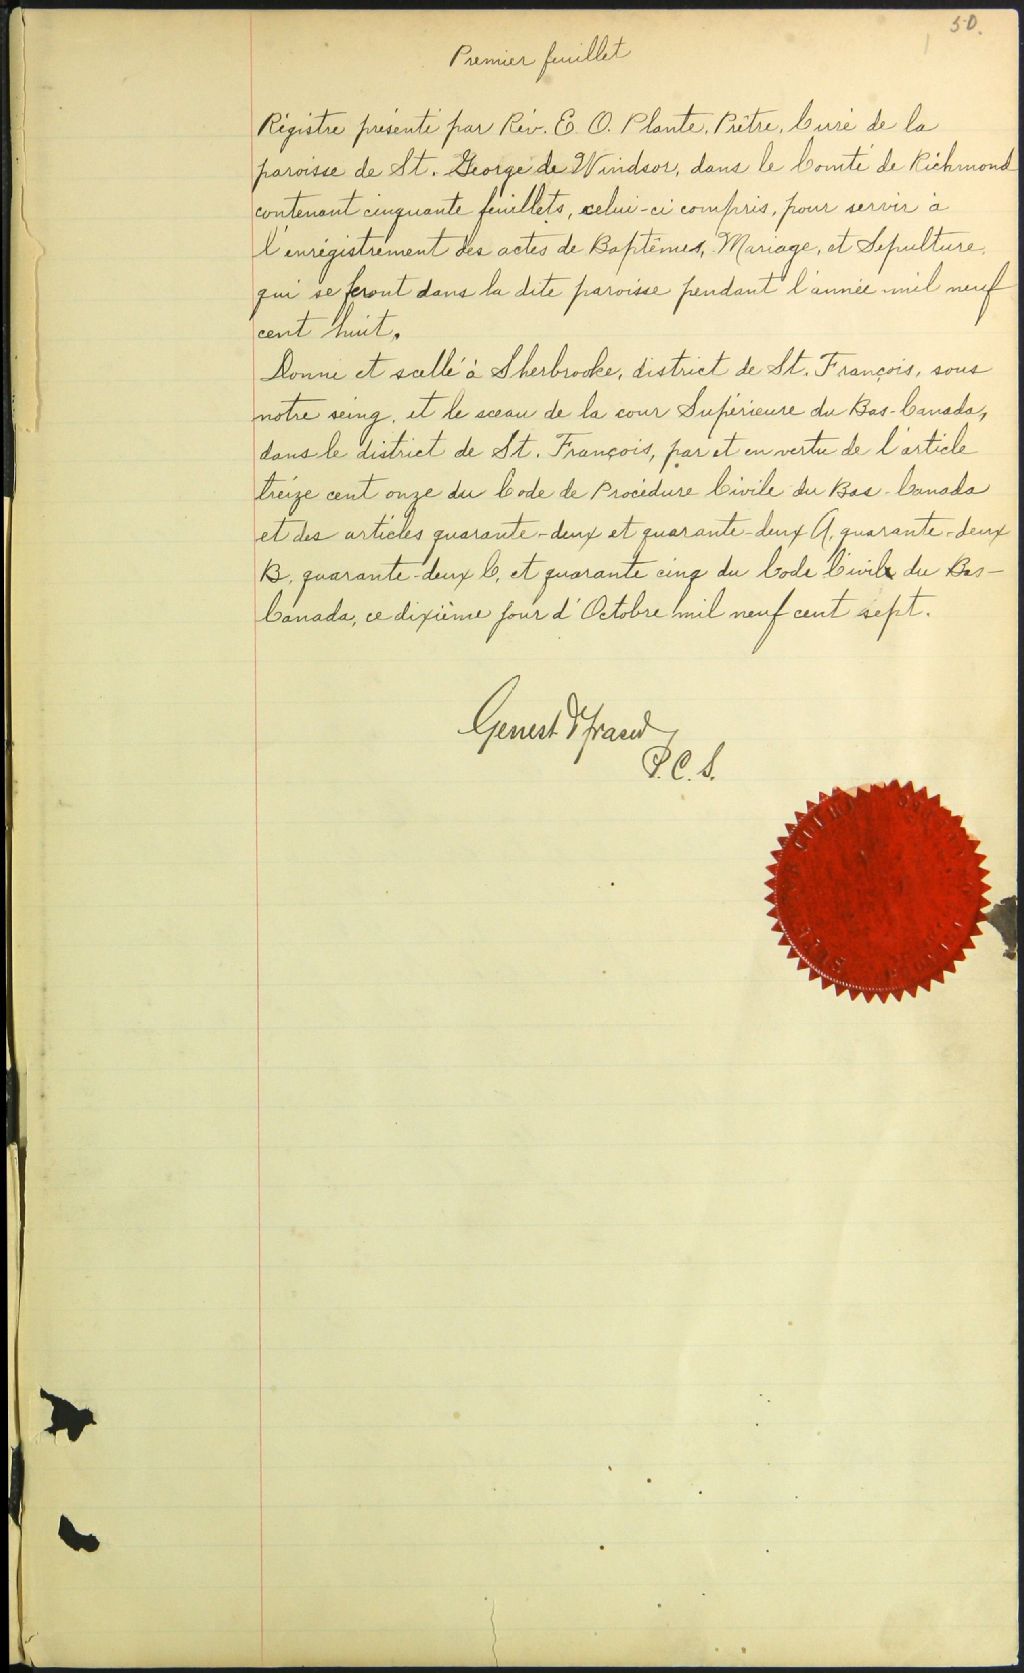 50.
Premier feuillet
Régistre présenté par Rév. E. O. Plante, Prêtre, Curé de la
paroisse de St. George de Windsor, dans le Comté de Richmond
contenant cinquante feuillets, celui-ci compris, pour servir à
l'enrégistrement des actes de Baptêmes, Mariage, et Sepulture,
qui se feront dans la dite paroisse pendant l'année mil neuf
cent huit.
Donné et scellé à Sherbrooke, district de St. François, sous
notre seing, et le sceau de la cour Supérieure du Bas-Canada,
dans le district de St. François, par et en vertu de l'article
treize cent onze du Code de Procédure Civile du Bas-Canada
et des articles quarante-deux et quarante-deux A, quarante-deux
B, quarante-deux C, et quarante cinq du Code Civil du Bas-
Canada, ce dixième jour d'Octobre mil neuf cent sept.
Genest & Fraser
P.C.S.